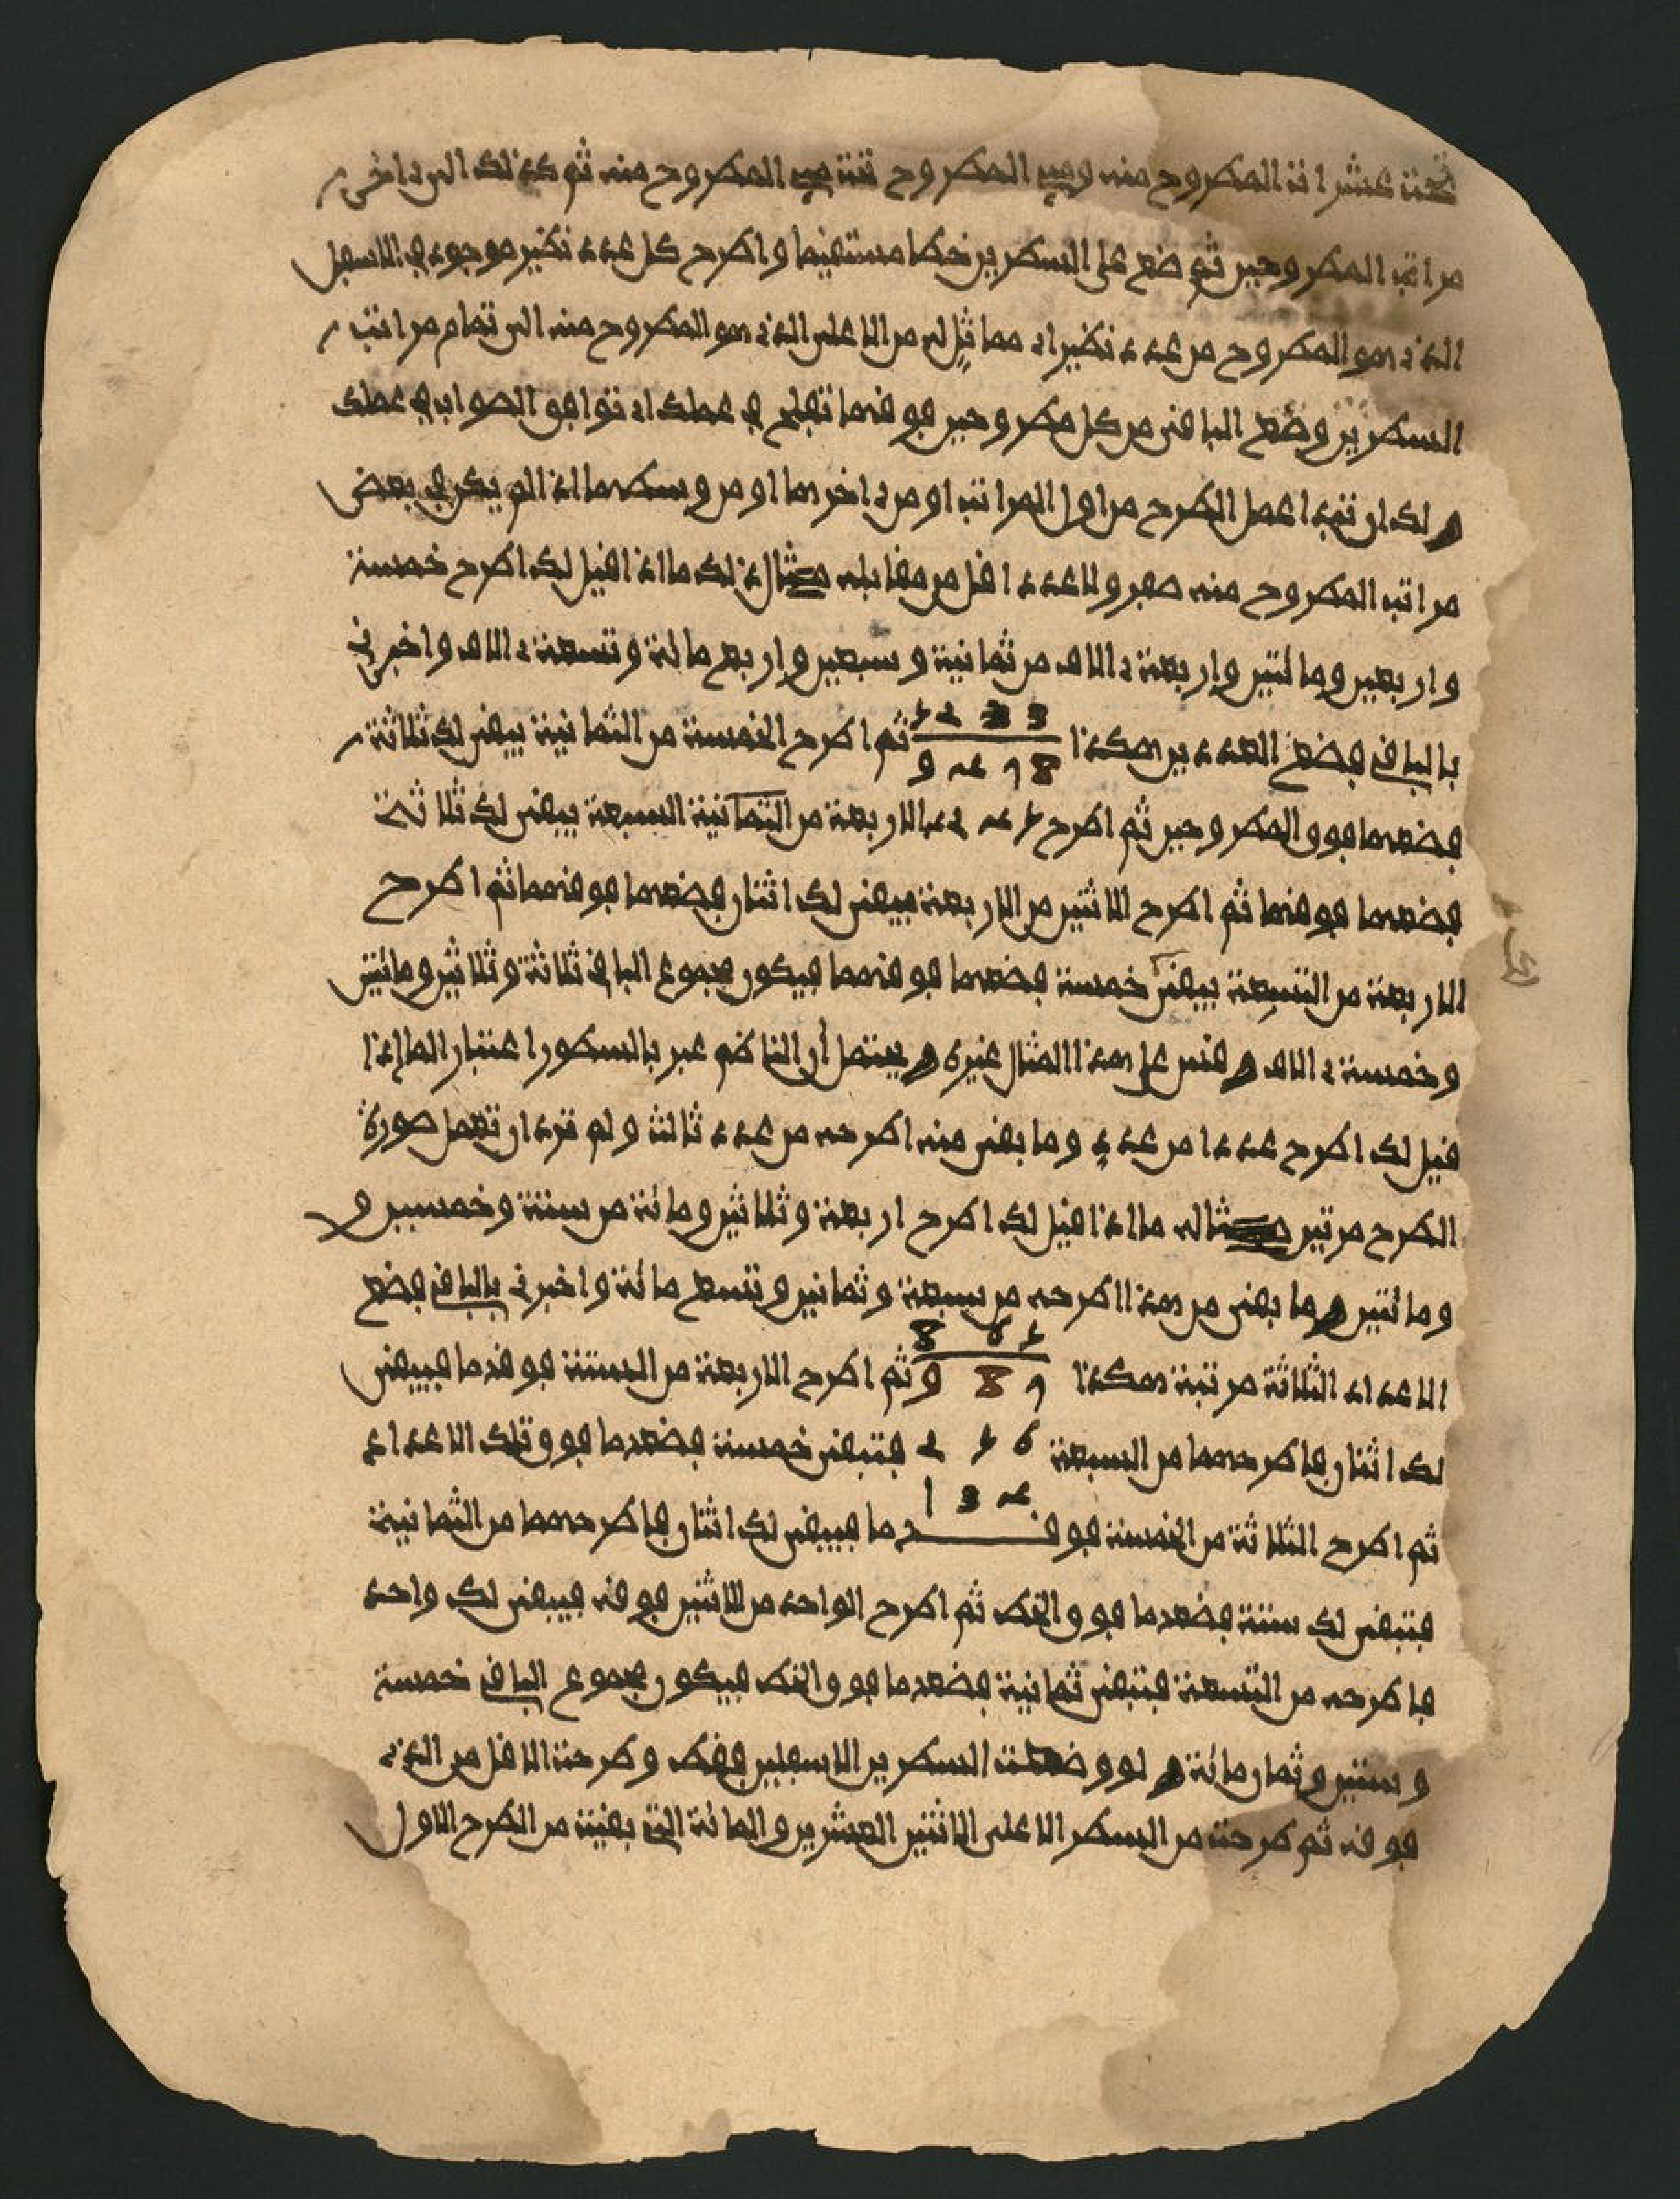 تحت عشرات المطروح منه ومين المطروح تحت مين المطروح منه ثم كذلك الى ءاخر
مراتب المطروحين ثم ضع على السطرين خطا مستقيما واطرح كل عدد نظير موجود في الاسفل
الذي هو المطروح من عدد نظير اي مماثل له من الاعلى الذي هو المطروح منه الى تمام مراتب
السطرين وضع الباقي من كل مطروحين فوقهما تفلح في عملك اي توافق الصواب في عملك
ولك ان تبدا عمل الطرح من اول المراتب او من ءاخرها او من وسطها اذا لم يكن في بعض
مراتب المطروح منه صفر ولا عدد اقل من مقابله مثال ذلك ما اذا قيل لك اطرح خمسة
واربعين ومائتين واربعة ءالاف من ثمانية وسبعين واربع مائة وتسعة ءالاف واخبرني
بالباقي فضع العددين هكذا 5233 9478 ثم اطرح الخمسة من الثمانية يبقى لك ثلاثة
فضعها فوق المطروحين ثم اطرح 4245 الاربعة من الثمانية السبعة يبقى لك ثلاثة
فضعها فوقهما ثم اطرح الاثنين من الاربعة يبقى لك اثنان فضعهما فوقهما ثم اطرح
الاربعة من التسعة يبقى خمسة فضعها فوقهما فيكون مجموع الباقي ثلاثة وثلاثين ومائتين
وخمسة ءالاف وقس على هذا المثال غيره ويحتمل أن الناظم عبر بالسطور اعتبارا لما إذا
قيل لك اطرح عددا من عدد وما بقي منه اطرحه من عدد ثالث ولم ترد ان تعمل صورة
الطرح مرتين مثاله ما اذا قيل لك اطرح اربعة وثلاثين ومائة من ستة وخمسين و
ومائتين وما بقي من هذا اطرحه من سبعة وثمانين وتسع مائة واخبرني بالباقي فضع
الاعداد الثلاثة مرتبة هكذا 865 987 ثم اطرح الاربعة من الستة فوقها فيبقى
لك اثنان فاطرحهما من السبعة 256 فتبقى خمسة فضعها فوق تلك الاعداد
ثم اطرح الثلاثة من الخمسة فوق 134 ها فيبقى لك اثنان فاطرحهما من الثمانية
فتبقى لك ستة فضعها فوق الخط ثم اطرح الواحد من الاثنين فوقه فيبقى لك واحد
فاطرحه من التسعة فتبقى ثمانية فضعها فوق الخط فيكون مجموع الباقي خمسة
وستين وثمان مائة ولو وضعت السطرين الاسفلين فقط وطرحت الاقل من الذي
فوقه ثم طرحت من السطر الاعلى الاثنين العشرين والمائة التي بقيت من الطرح الاول